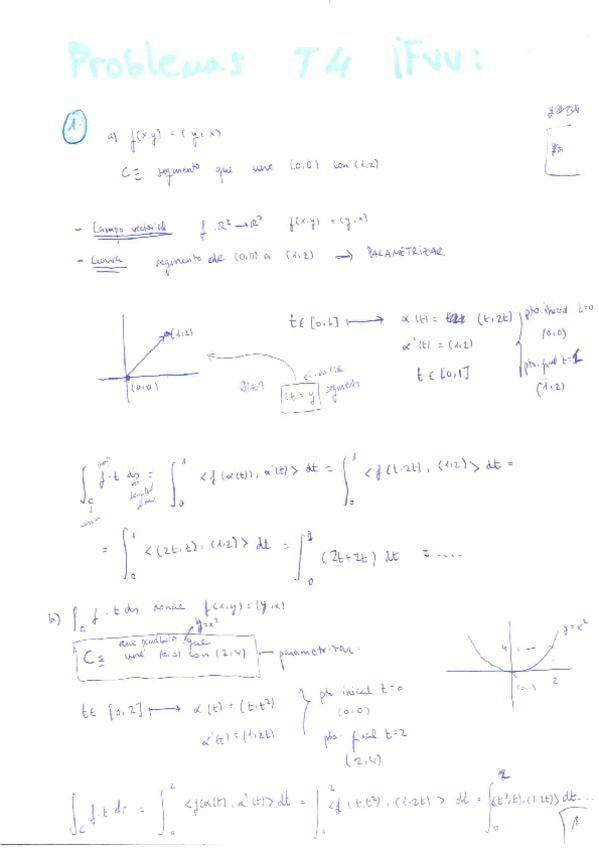 Problemas T4 iFVV:
1. a) f(x,y) = (y,x)
C≡ segmento que une (0,0) con (1,2)
- Campo vectorial f: R² → R² f(x,y) = (y,x)
- Curva segmento de (0,0) a (1,2) → PARAMETRIZAR
t∈ [0,1] ⟼ α(t) = (t,2t)
α'(t) = (1,2)
t ∈ [0,1]
pto. inicial t=0
(0,0)
pto. final t=1
(1,2)
(1,2)
(0,0)
2t = y
segmento
∫_C f·t ds = ∫_0^1 <f(α(t)), α'(t)> dt = ∫_0^1 <f(t,2t), (1,2)> dt =
= ∫_0^1 <(2t,t), (1,2)> dt = ∫_0^1 (2t+2t) dt = ....
b) ∫_C f·t ds donde f(x,y) = (y,x)
y=x²
C≡ una parábola que
une (0,0) con (2,4) — parametrizar.
y=x²
4
(0,0)
2
t∈ [0,2] ⟼ α(t) = (t,t²)
α'(t) = (1,2t)
pto inicial t=0
(0,0)
pto. final t=2
(2,4)
∫_C f·t ds = ∫_0^2 <f(α(t)), α'(t)> dt = ∫_0^2 <f(t,t²), (1,2t)> dt = ∫_0^2 <(t²,t), (1,2t)> dt....